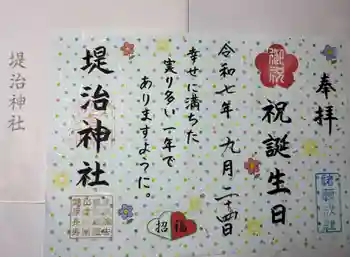 奉拝
御祝
祝誕生日
令和七年 九月二十四日
幸せに満ちた
実り多い一年で
ありますように。
堤治神社
招福
堤治神社